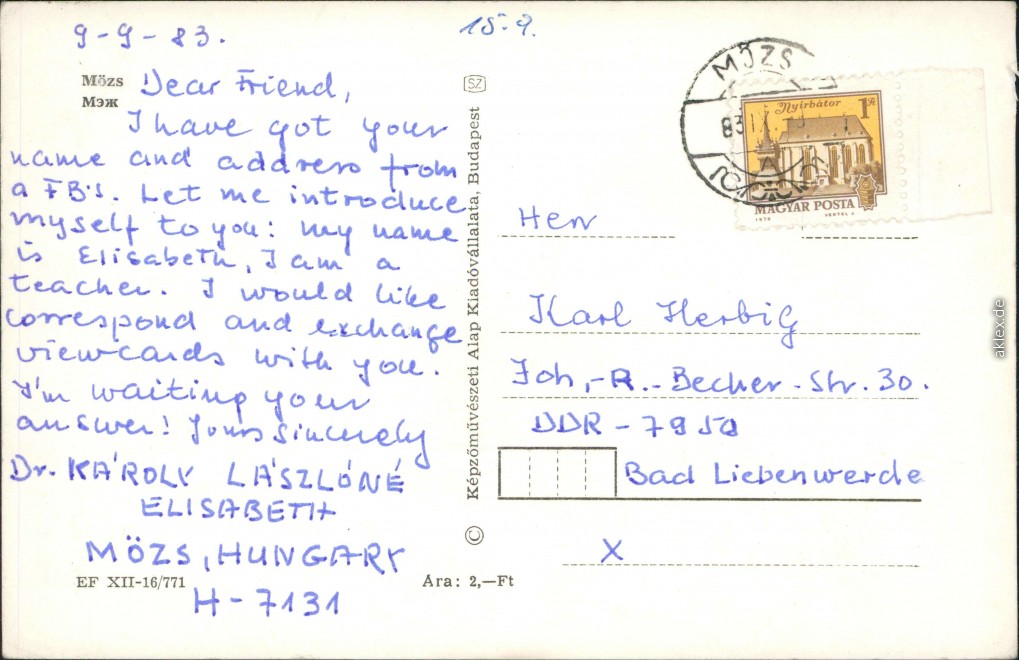 9-9-83.
15.9.
Mözs
Мэж
Dear Friend,
I have got your
name and address from
a FB's. Let me introduce
myself to you: my name
is Elisabeth, I am a
teacher. I would like
correspond and exchange
viewcards with you.
I'm waiting your
answer! Yours sincerely
Dr. KÁROLY LÁSZLÓNÉ
ELISABETH
MÖZS, HUNGARY
EF XII-16/771
Ára: 2,—Ft
H-7131
SZ
Képzőművészeti Alap Kiadóvállalata, Budapest
©
MÖZS
83
Nyírbátor
1Ft
MAGYAR POSTA
VERTEL J.
Herr
Karl Herbig
Joh.-R.-Becher-Str. 30.
DDR-7950
Bad Liebenwerde
X
aklex.de